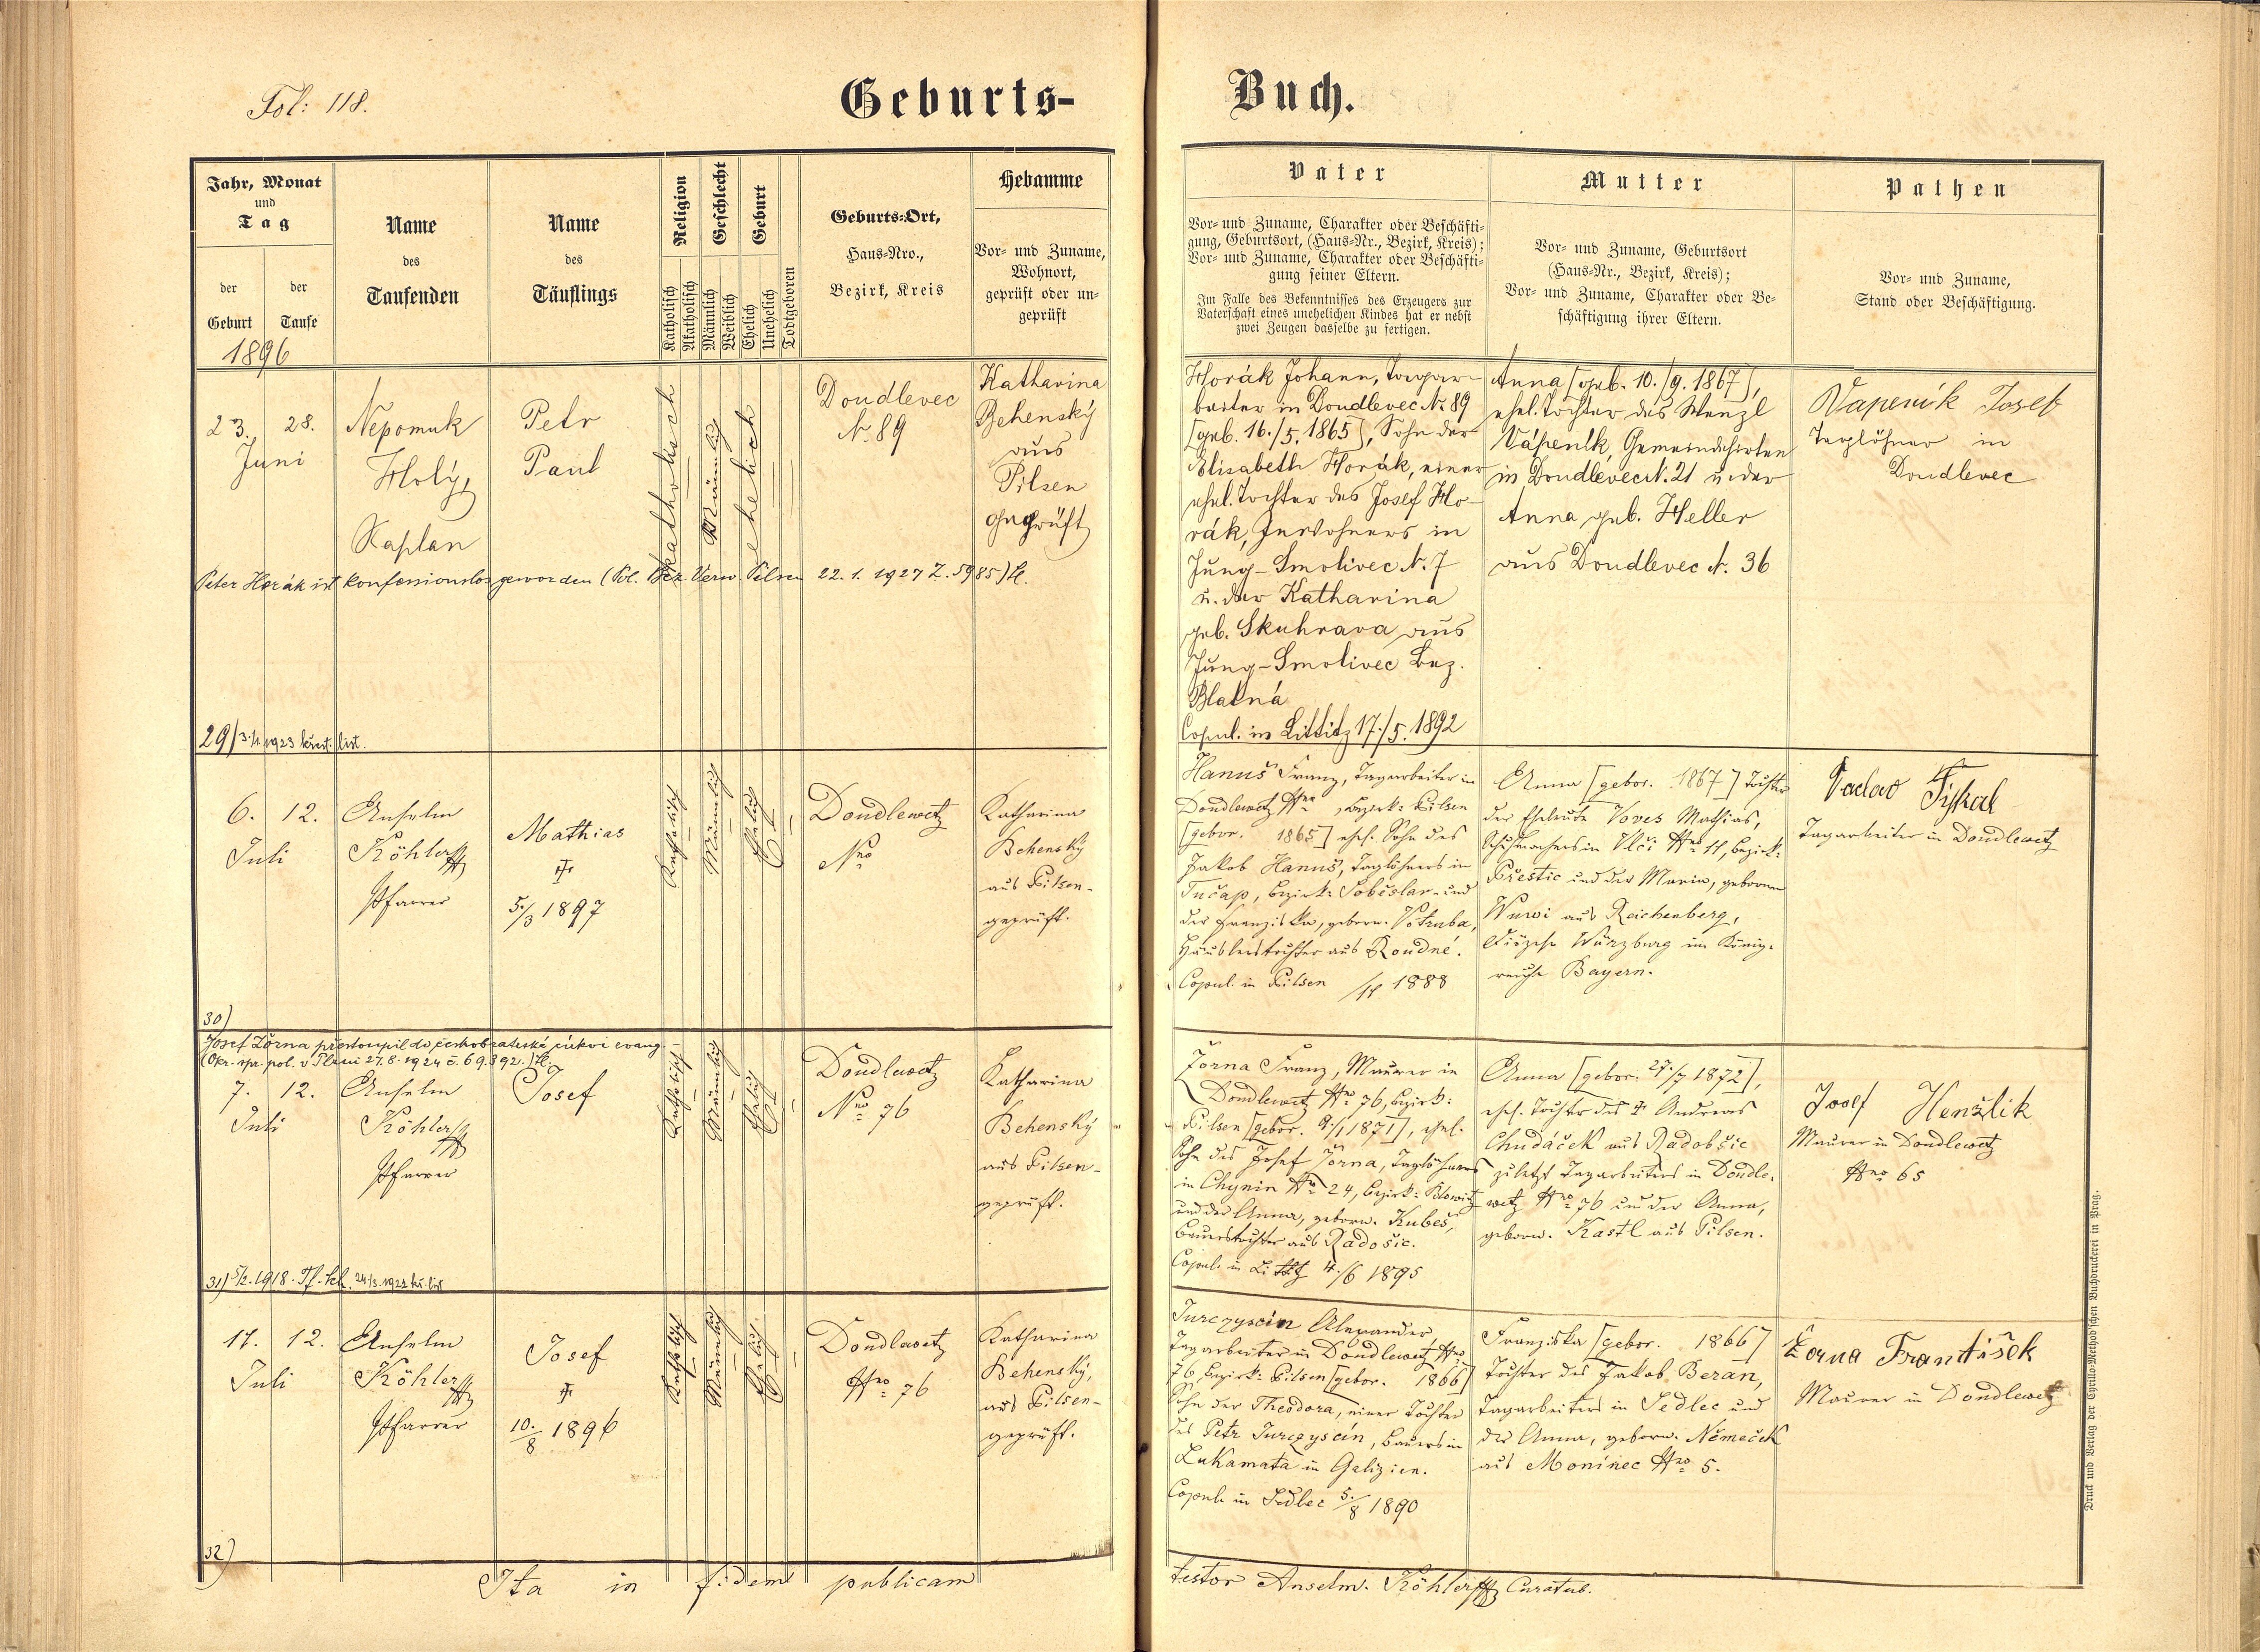 Fol: 118.
Geburts-
Buch.
Jahr, Monat
und
Tag
der
Geburt
der
Taufe
1896
Name
des
Taufenden
Name
des
Täuflings
Religion
Katholisch
Akatholisch
Geschlecht
Männlich
Weiblich
Geburt
Ehelich
Unehelich
Todtgeboren
Geburts-Ort,
Haus-Nro.,
Bezirk, Kreis
Hebamme
Vor- und Zuname,
Wohnort,
geprüft oder un-
geprüft
Vater
Vor- und Zuname, Charakter oder Beschäfti-
gung, Geburtsort, (Haus-Nr., Bezirk, Kreis);
Vor- und Zuname, Charakter oder Beschäfti-
gung seiner Eltern.
Im Falle des Bekenntnisses des Erzeugers zur
Vaterschaft eines unehelichen Kindes hat er nebst
zwei Zeugen dasselbe zu fertigen.
Mutter
Vor- und Zuname, Geburtsort
(Haus-Nr., Bezirk, Kreis);
Vor- und Zuname, Charakter oder Be-
schäftigung ihrer Eltern.
Pathen
Vor- und Zuname,
Stand oder Beschäftigung.
23. 28.
Juni
Nepomuk
Holý,
Kaplan
Petr
Paul
katholisch
Männlich
ehelich
Doudlevec
N. 89
Katharina
Behenský
aus
Pilsen
geprüft
Horák Johann, Tagar-
beiter in Doudlevec N. 89
[geb. 16./5. 1865], Sohn der
Elisabeth Horák, einer
ehel. Tochter des Josef Ho-
rák, Inwohners in
Jung-Smolivec N. 7
u. der Katharina
geb. Skuhrava aus
Jung-Smolivec Bez.
Blatná
Copul. in Littitz 17./5. 1892
Anna [geb. 10./9. 1867],
ehel. Tochter des Wenzl
Vápeník, Gemeindehirten
in Doudlevec N. 21 u. der
Anna geb. Heller
aus Doudlevec N. 36
Vapeník Josef
Taglöhner in
Doudlevec
Peter Horák ist konfessionslos geworden (Pol. Bez. Verw. Pilsen 22. 1. 1927 Z. 5985) H.
29) 3./1. 1923 křest. list.
6. 12.
Juli
Anselm
Köhler
Pfarrer
Mathias
5./3 1897
Katholisch
Männlich
Ehelich
Doudlewetz
Nro
Katharina
Behenský
aus Pilsen-
geprüft.
Hanuš Franz, Tagarbeiter in
Doudlewetz Nro , Bezirk: Pilsen
[gebor. 1865] ehel. Sohn des
Jakob Hanuš, Taglöhners in
Tučap, Bezirk: Soběslav- und
der Franziska, geborn. Votruba,
Häuslerstochter aus Roudné.
Copul. in Pilsen /11 1888
Anna [gebor. 1867] Tochter
der Eheleute Voves Mathias,
Schuhmachers in Vlčí Nro 11, Bezirk:
Přestic und der Maria, gebornen
aus Reichenberg,
Diözese Würzburg im König-
reiche Bayern.
Vaclav Fiskal
Tagarbeiter in Doudlewetz
30)
Josef Žorna přestoupil do českobratrské církve evang.
(Okr. spr. pol. v Plzni 27. 8. 1924 č. 69.392.) H.
7. 12.
Juli
Anselm
Köhler
Pfarrer
Josef
Katholisch
Männlich
Ehelich
Doudlewetz
Nro 76
Katharina
Behenský
aus Pilsen-
geprüft.
Žorna Franz, Maurer in
Doudlewetz Nro 76, Bezirk:
Pilsen [gebor. 9./1 1871], ehel.
Sohn des Josef Žorna, Taglöhners
in Chynin Nro 24, Bezirk: Blowitz
und der Anna, geborn. Kubeš,
Bauerstochter aus Radošic.
Copul. in Littitz 4./6 1895
Anna [gebor. 27./7 1872],
ehel. Tochter des Andreas
Chudáček aus Radobšic
zuletzt Tagarbeiters in Doudle-
wetz Nro 76 und der Anna,
geborn. Kastl aus Pilsen.
Josef Henžlik
Maurer in Doudlewetz
Nro 65
31) 5/2. 1918. Tf-sch. 24/3. 1922 kř. list
11. 12.
Juli
Anselm
Köhler
Pfarrer
Josef
10./8 1896
Katholisch
Männlich
Ehelich
Doudlewetz
Nro 76
Katharina
Behenský,
aus Pilsen-
geprüft.
Jurczyscin Alexander,
Tagarbeiter in Doudlewetz Nro
76, Bezirk: Pilsen [gebor. 1866]
Sohn der Theodora, einer Tochter
des Petr Jurczyscin, Bauers in
Lukamata in Galizien.
Copul. in Sedlec 5./8 1890
Franziska [gebor. 1866]
Tochter des Jakob Beran,
Tagarbeiters in Sedlec und
der Anna, geborn. Němeček
aus Monínec Nro 5.
Žorna František
Maurer in Doudlewetz
32)
Ita in fidem publicam
testor Anselm. Köhler Curatus.
Druck und Verlag der Cyrillo-Method'schen Buchdruckerei in Prag.